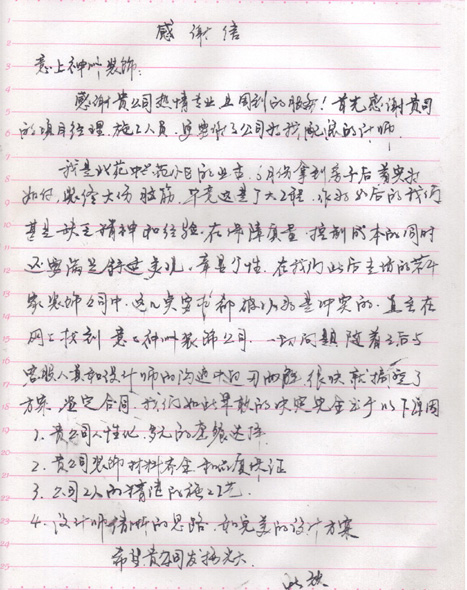 感谢信
意上神州装饰:
感谢贵公司热情专业且周到的服务!首先感谢贵司
的项目经理、施工人员,还要感谢公司的设计师
我是北苑 小区的业主,3月份拿到房子后着实为
如何装修大伤脑筋,毕竟这是个大工程,作为80后的我们
甚是缺乏精神和经验,在保障质量、控制成本的同时
还要满足舒适美观、彰显个性。在我们此后走访的
家装饰公司中,这几点要求都被认为是冲突的。直至在
网上找到意上神州装饰公司,一切问题随着之后与
客服人员和设计师的沟通 迎刃而解,很快就搞定了
方案、签定合同。我们如此果敢的决定完全出于以下原因
1. 贵公司人性化、多元的套餐选择
2. 贵公司装饰材料齐全和品质保证
3. 公司工人的精造的施工工艺.
4. 设计师清晰的思路、和完美的设计方案
希望贵公司发扬光大.